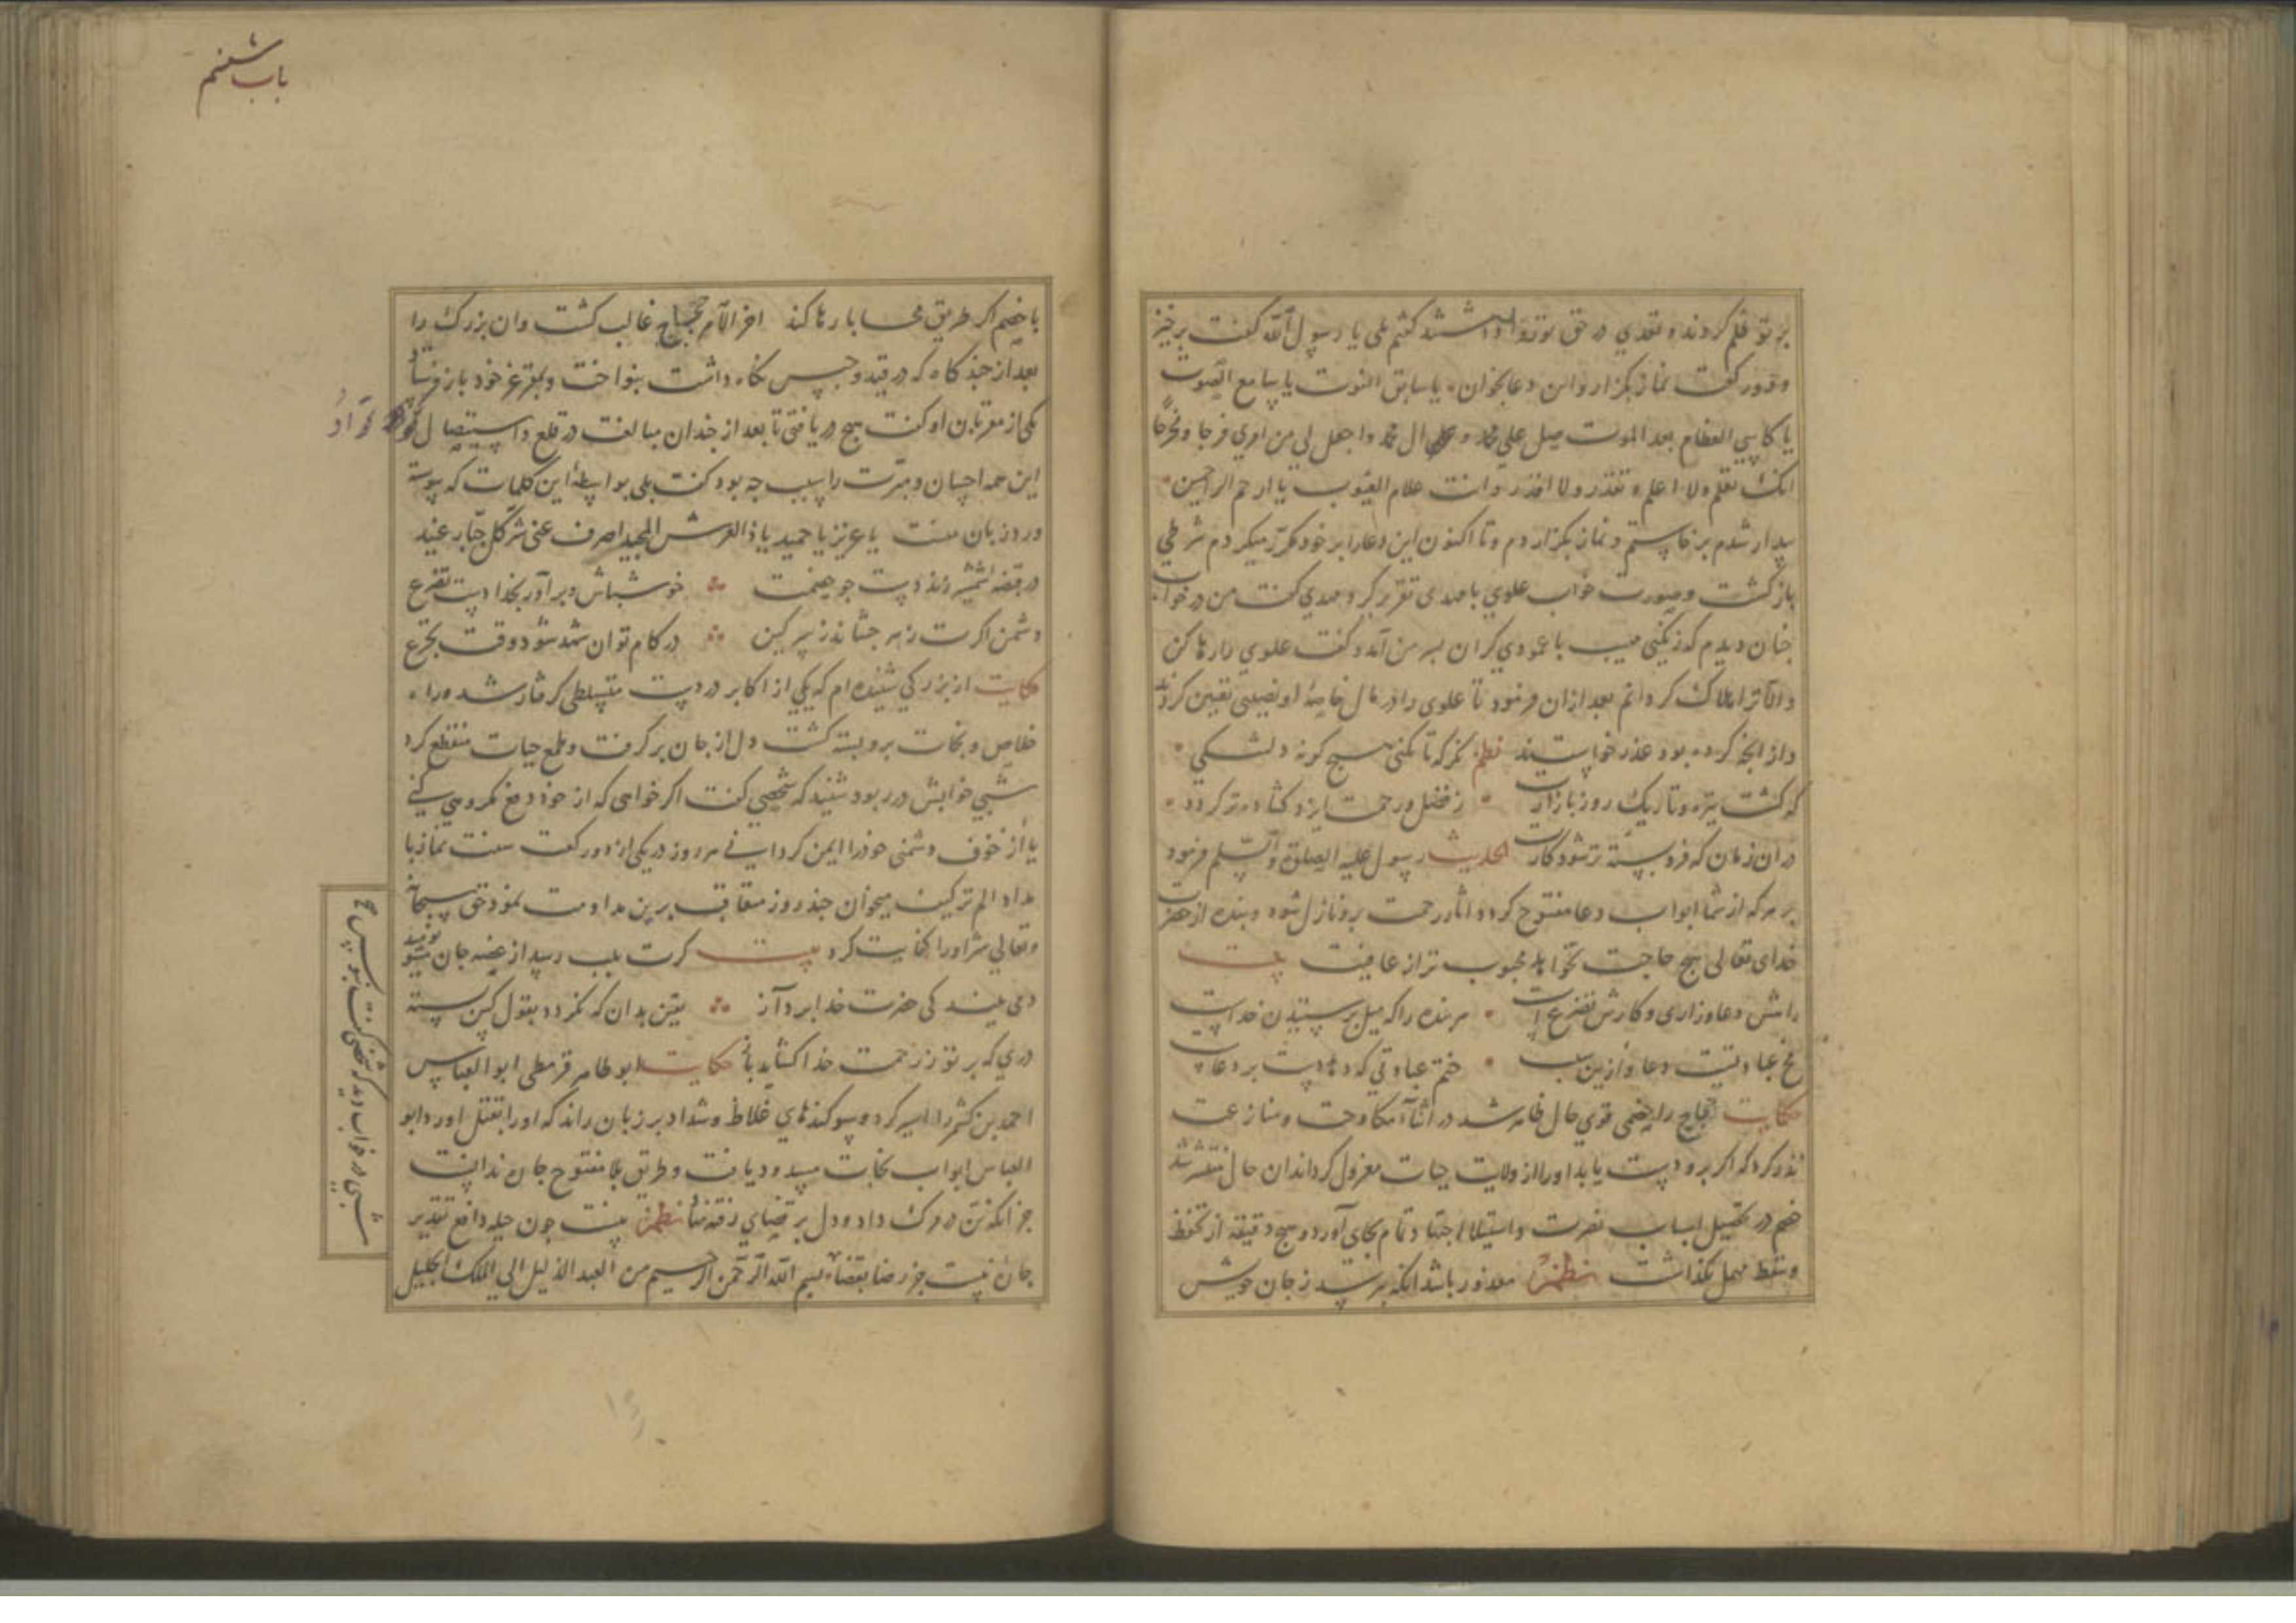 بر تو ظلم کردند و تعدی در حق تو روا داشتند گفتم بلی یا رسول الله گفت برخیز
و دو رکعت نماز بگزار و این دعا بخوان یا سابق الفوت یا سامع الصوت
یا کاسی العظام بعد الموت صل علی محمد و علی ال محمد واجعل لی من امری فرجا و مخرجا
انک تعلم ولا اعلم و تقدر ولا اقدر وانت علام الغیوب یا ارحم الراحمین
بیدار شدم برخاستم و نماز بگزاردم و تا اکنون این دعا را بر خود مکرر میکردم شرطی
باز گشت و صورت خواب علوی با مهدی تقریر کرد مهدی گفت من در خواب
چنان دیدم که زنگیی مهیب با عمودی گران بسر من آمد و گفت علوی را رها کن
و الا ترا هلاک گردانم بعد ازان فرمود تا علوی را از مال خاصهٔ او نصیبی تعیین کردند
و از آنچه کرده بود عذر خواستند نظم نگر که تا نکنی هیچ گونه دلتنگی
که گشت تیره و تاریک روز بازارت ز فضل و رحمت ایزد گشاده تر گردد
در ان زمان که فرو بسته تر شود کارت الحدیث رسول علیه الصلوة والسلم فرمود
بر هر که از شما ابواب دعا مفتوح گردد اثار رحمت برو نازل شود و بنده از حضرت
خدای تعالی هیچ حاجت نخواهد محبوب تر از عافیت بیت
دانش دعا و زاری و کارش تضرع است هر بنده را که میل پرستیدن خداست
مخ عبادتست دعا و ازین سبب ختم عبادتی که دهد دست بر دعاست
حکایت حجاج را خصمی قوی حال ظاهر شد در اثنآء مکاوحت و منازعت
نذر کرد که اگر برو دست یابد او را از ولایت حیات معزول گرداند ان حال منتشر شد
خصم در تحصیل اسباب نصرت و استیلا اجتهاد تمام بجای آورد و هیچ دقیقه از تحفظ
و تیقظ مهمل نگذاشت نظم معذور باشد آنکه بترسد ز جان خویش
باب ششم
با خصم اگر طریق محابا رها کند اخر الامر حجاج غالب گشت وان بزرگ را
بعد از چند گاه که در قید و حبس نگاه داشت بنواخت و بمقر عز خود باز فرستاد
یکی از مقربان او گفت هیچ دریافتی تا بعد از چندان مبالغت در قلع و استیصال
این همه احسان و مبرت را سبب چه بود گفت بلی بواسطهٔ این کلمات که پیوسته
ورد زبان منست یا عزیز یا حمید یا ذا العرش المجید اصرف عنی شر کل جبار عنید
در قبضه شمشیر زند دست چو خصمت خوش باش و برآور بخدا دست تضرع
دشمن اگرت زهر چشاند ز سر کین در کام توان شهد شود وقت تجرع
حکایت از بزرگی شنیده ام که یکی از اکابر در دست متسلطی گرفتار شد و راه
خلاص و نجات برو بسته گشت دل از جان برگرفت و طمع حیات منقطع کرد
شبی خوابش در ربود شنید که شخصی گفت اگر خواهی که از خود دفع مکروهی کنی
یا از خوف دشمنی خود را ایمن گردانی هر روز در یکی از دو رکعت سنت نماز با
مداد الم تر کیف میخوان چند روز متعاقب برین مداومت نمود حق سبحانه
و تعالی شر او را کفایت کرد بیت گرت بلب رسد از غصه جان نومید مشو
دمی بند کی حضرت خدا برد آز یقین بدان که نگردد بقول کس بسته
دری که بر تو ز رحمت خدا گشاید باز حکایت ابو طاهر قرمطی ابو العباس
احمد بن کشمرد را اسیر کرد و سوگندهای غلاظ و شداد بر زبان راند که او را بقتل اورد ابو
العباس ابواب نجات مسدود یافت و طریق بلا مفتوح چاره ندانست
جز آنکه تن در مرگ داد و دل بر قضای رفته نهاد نظم نیست چون حیله دافع تقدیر
چاره نیست جز رضا بقضا بسم الله الرحمن الرحیم من العبد الذلیل الی الملک الجلیل
شبی در خواب دید که شخصی گفت بنویس